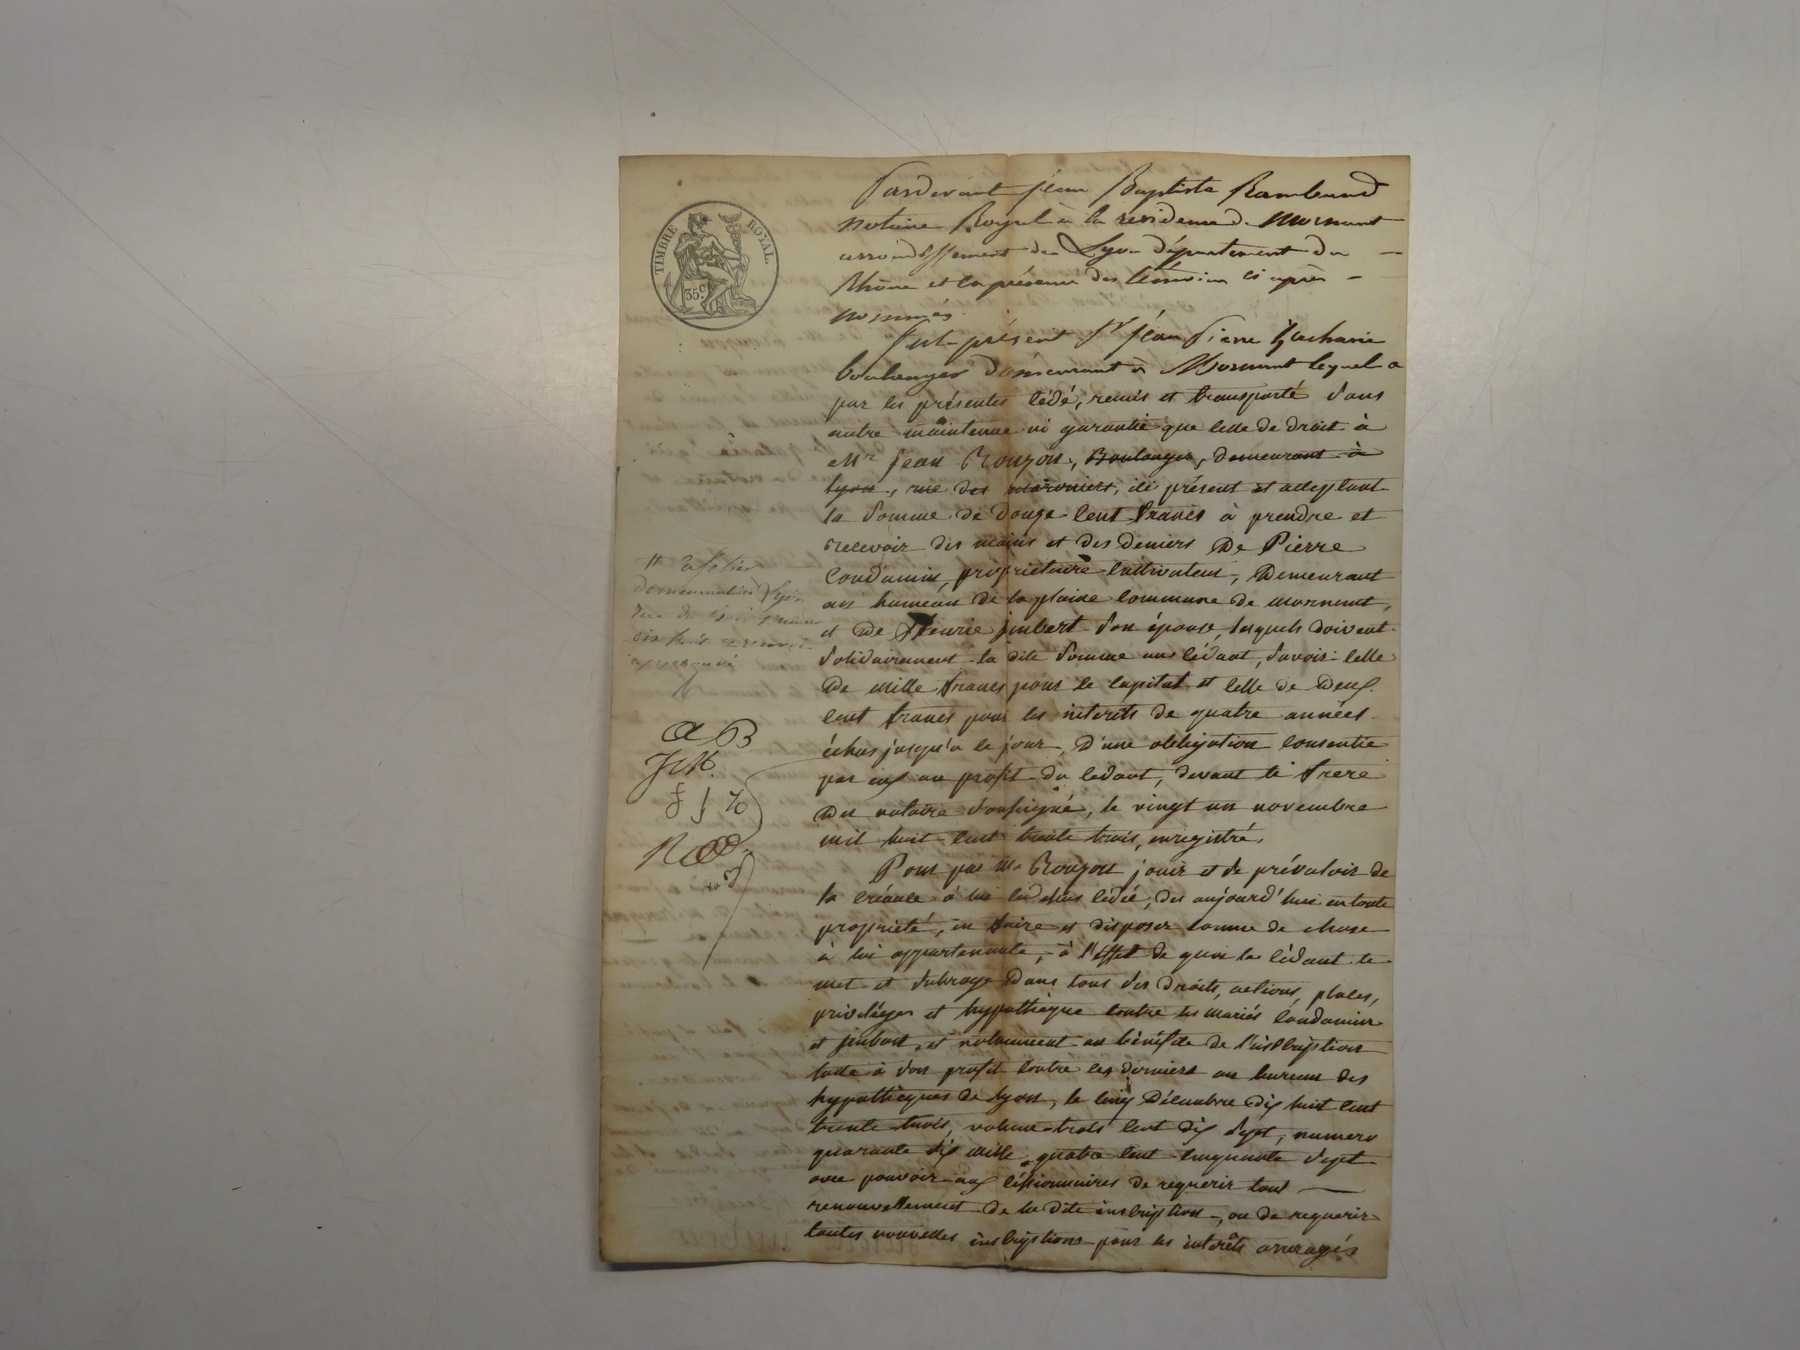 TIMBRE ROYAL.
35 c.
Pardevant Jean Baptiste Rambaud
notaire Royal à la residence de Mornant
arrondissement de Lyon département du
Rhône et en présence des témoins ci après
nommés.
Fut présent Sr Jean Pierre Zacharie
boulanger demeurant à Mornant lequel a
par les présentes cédé, remis et transporté sans
autre maintenue ni garantie que celle de droit à
Mr Jean Rouzon, Boulanger, demeurant à
Lyon, rue des maroniers, ici présent et acceptant
la somme de douze cent francs à prendre et
recevoir des mains et des deniers De Pierre
Condamin, propriétaire cultivateur, Demeurant
au hameau de la plaine commune de mornant,
et De fleurie jmbert son épouse, lesquels doivent
solidairement la dite somme au cédant, savoir: celle
De mille francs pour le capital et celle de Deux
cent francs pour les interêts de quatre années
échus jusqu'a ce jour, D'une obligation consentie
par eux au profit du cedant, devant le frere
Du notaire soussigné, le vingt un novembre
mil huit cent trente trois, enregistré.
Pour par Mr Rouzon jouir et se prévaloir de
la créance à lui ci dessus cédée, dès aujourd'hui en toute
propriété, en faire et disposer comme de chose
à lui appartenante, à l'effet de quoi le cédant le
met et subroge Dans tous ses droits, actions, places,
privilèges et hypothèque contre les mariés Condamin
et jmbert, et notamment au bénéfice de l'inscription
faite à son profit contre ces derniers au bureau des
hypothèques de Lyon, le cinq Décembre dix huit cent
trente trois, volume trois cent dix sept, numero
quarante dix mille quatre cent cinquante sept
avec pouvoir aux cessionnaires de requerir tout
renouvellement de la dite inscription, ou de requerir
toutes nouvelles inscriptions pour les interêts arreragés
demeurant à Lyon
approuvé